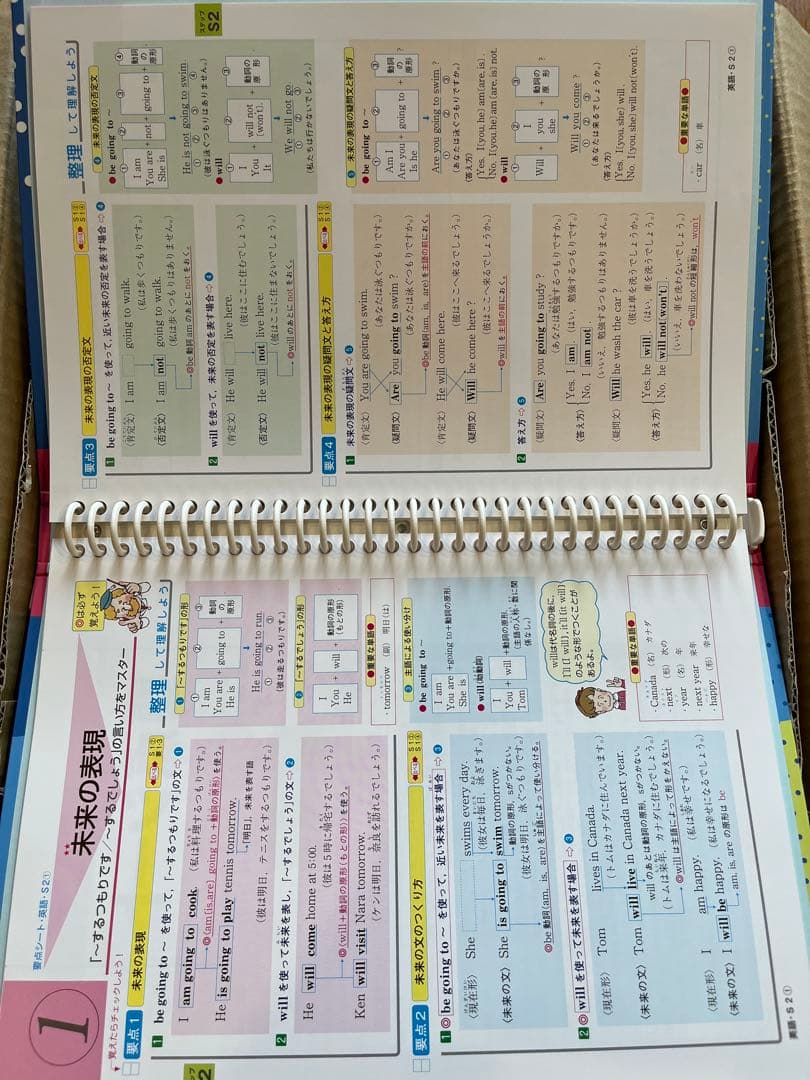 要点シート・英語・S2①
1
未来の表現
「～するつもりです／～するでしょう」の言い方をマスター
◎は必ず覚えよう！
▼覚えたらチェックしよう！
要点1 未来の表現
1 be going to ～ を使って,「～するつもりです」の文⇨1
I am going to cook. (私は料理するつもりです。)
◎〈am(is,are) going to＋動詞の原形〉を使う。
He is going to play tennis tomorrow.
「明日」, 未来を表す語
(彼は明日, テニスをするつもりです。)
2 will を使って未来を表し,「～するでしょう」の文⇨2
He will come home at 5:00.
(彼は5時に帰宅するでしょう。)
◎〈will＋動詞の原形(もとの形)〉を使う。
Ken will visit Nara tomorrow.
(ケンは明日, 奈良を訪れるでしょう。)
整理して理解しよう
1 「～するつもりです」の形
① ② ③
I am
You are
He is
＋ going to ＋ 動詞の原形
↓
He is going to run.
① ② ③
(彼は走るつもりです。)
2 「～するでしょう」の形
I
You
He
＋ will ＋ 動詞の原形(もとの形)
●重要な単語●
・tomorrow (副) 明日(は)
要点2 未来の文のつくり方
1 ◎ be going to ～ を使って, 近い未来を表す場合⇨3
〈現在形〉 She swims every day.
(彼女は毎日, 泳ぎます。)
動詞の原形, sがつかない。
〈未来の文〉 She is going to swim tomorrow.
(彼女は明日, 泳ぐつもりです。)
◎be動詞(am, is, are)を主語によって使い分ける。
2 ◎ will を使って未来を表す場合⇨3
〈現在形〉 Tom lives in Canada.
(トムはカナダに住んでいます。)
〈未来の文〉 Tom will live in Canada next year.
willのあとは動詞の原形, sがつかない。
(トムは来年, カナダに住むでしょう。)
◎willは主語によって形をかえない。
〈現在形〉 I am happy. (私は幸せです。)
〈未来の文〉 I will be happy. (私は幸せになるでしょう。)
am, is, are の原形は be
3 主語による使い分け
●be going to ～
I am
You are
She is
＋going to＋動詞の原形
●will(助動詞)
I
You
Tom
＋will＋動詞の原形
(主語の人称・数に関係なし。)
willは代名詞の後に, I'll(I will), it'll(it will)のような形でつくことがあるよ。
●重要な単語●
・Canada (名) カナダ
・next (形) 次の
・year (名) 年
・next year 来年
・happy (形) 幸せな
英語・S2①
要点3 未来の表現の否定文
1 be going to ～ を使って, 近い未来の否定を表す場合⇨4
〈肯定文〉 I am going to walk.
(私は歩くつもりです。)
〈否定文〉 I am not going to walk.
(私は歩くつもりはありません。)
◎be動詞 am のあとに not をおく。
2 will を使って, 未来の否定を表す場合⇨4
〈肯定文〉 He will live here.
(彼はここに住むでしょう。)
〈否定文〉 He will not live here.
(彼はここに住まないでしょう。)
◎will のあとに not をおく。
整理して理解しよう
ステップ S2
4 未来の表現の否定文
●be going to ～
① ② ③ ④
I am
You are
She is
＋ not ＋ going to ＋ 動詞の原形
↓
He is not going to swim.
① ② ③ ④
(彼は泳ぐつもりはありません。)
●will
① ② ③
I
You
It
＋ will not (won't) ＋ 動詞の原形
↓
We will not go.
① ② ③
(私たちは行かないでしょう。)
要点4 未来の表現の疑問文と答え方
1 未来の表現の疑問文⇨5
〈肯定文〉 You are going to swim.
(あなたは泳ぐつもりです。)
〈疑問文〉 Are you going to swim?
(あなたは泳ぐつもりですか。)
◎be動詞(am, is, are)を主語の前におく。
〈肯定文〉 He will come here.
(彼はここへ来るでしょう。)
〈疑問文〉 Will he come here?
(彼はここへ来るでしょうか。)
◎will を主語の前におく。
2 答え方⇨5
〈疑問文〉 Are you going to study?
(あなたは勉強するつもりですか。)
〈答え方〉 Yes, I am. (はい, 勉強するつもりです。)
No, I am not.
(いいえ, 勉強するつもりはありません。)
〈疑問文〉 Will he wash the car?
(彼は車を洗うでしょうか。)
〈答え方〉 Yes, he will. (はい, 車を洗うでしょう。)
No, he will not(won't).
(いいえ, 車を洗わないでしょう。)
◎will not の短縮形は, won't
5 未来の表現の疑問文と答え方
●be going to ～
① ② ③
Am I
Are you
Is he
＋ going to ＋ 動詞の原形 ?
↓
Are you going to swim?
① ② ③
(あなたは泳ぐつもりですか。)
〈答え方〉
Yes, I(you, he) am(are, is).
No, I(you, he) am(are, is) not.
●will
① ② ③
Will ＋ I you she ＋ 動詞の原形 ?
↓
Will you come?
① ② ③
(あなたは来るでしょうか。)
〈答え方〉
Yes, I(you, she) will.
No, I(you, she) will not(won't).
●重要な単語●
・car (名) 車
英語・S2①